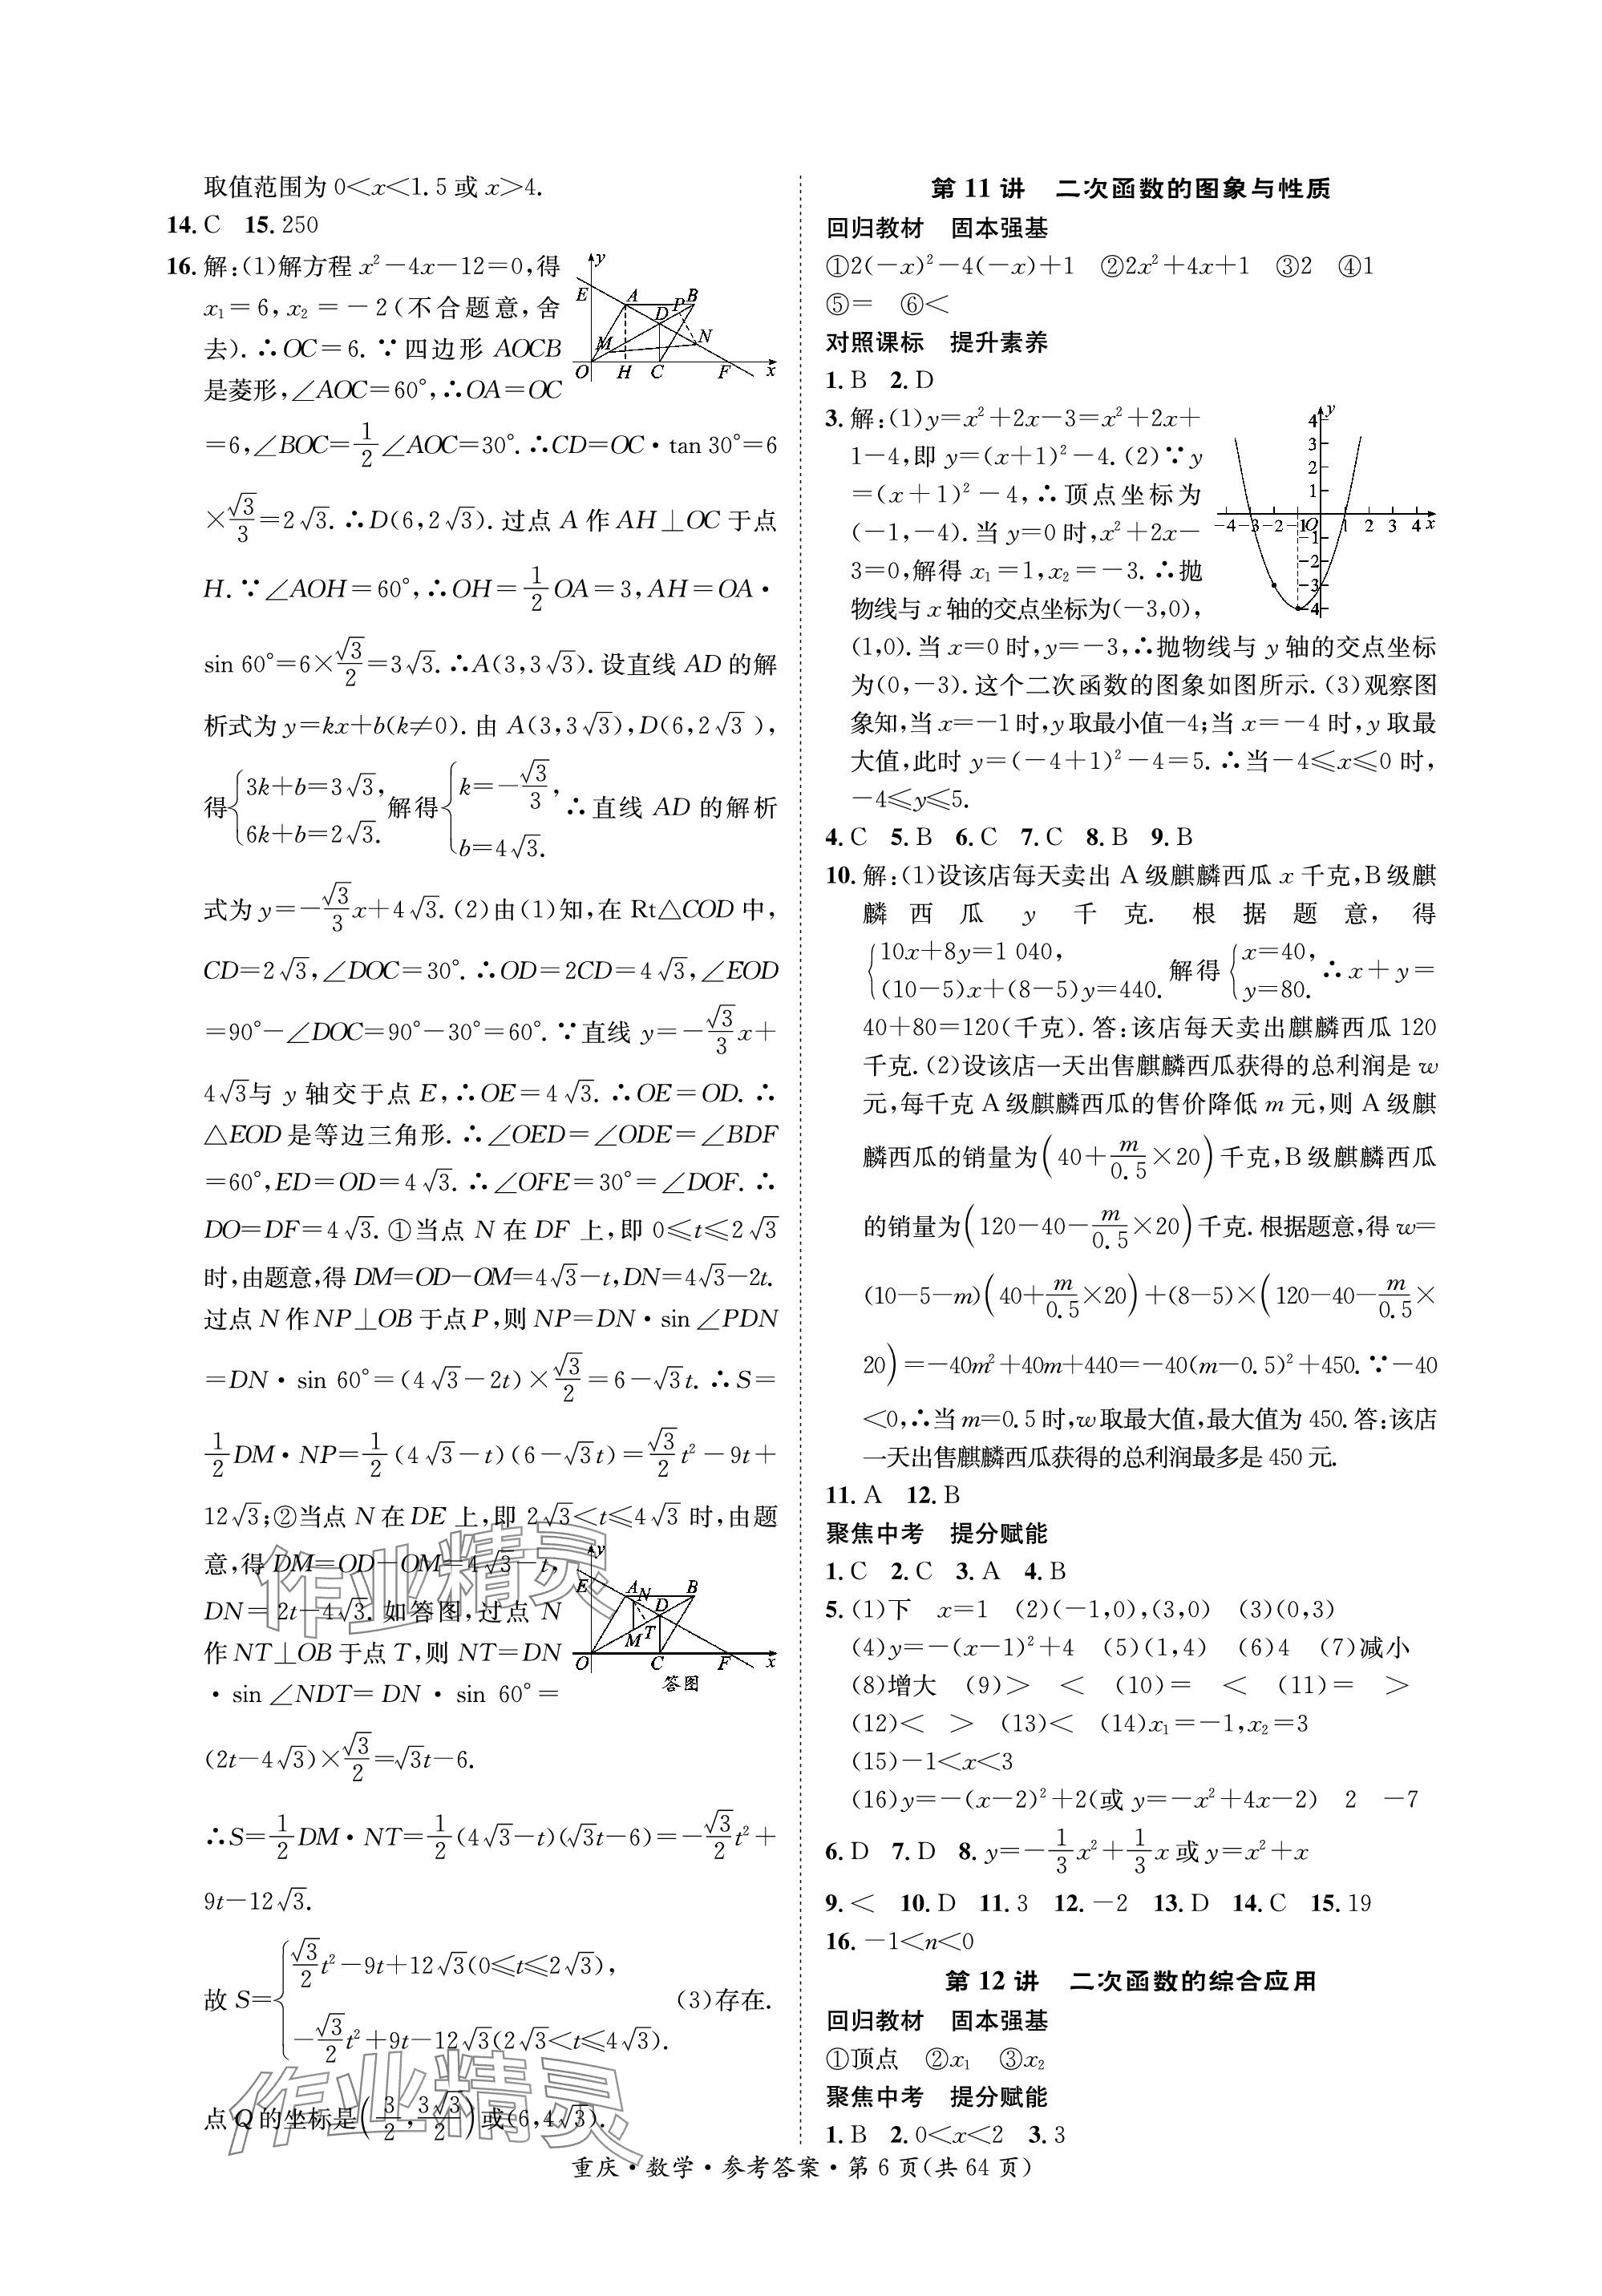 取值范围为 0<x<1.5 或 x>4.
14. C 15. 250
16. 解:(1)解方程 x²-4x-12=0,得
x₁=6,x₂=-2(不合题意,舍
去).∴OC=6.∵四边形 AOCB
是菱形,∠AOC=60°,∴OA=OC
=6,∠BOC=1/2∠AOC=30°.∴CD=OC·tan 30°=6
×√3/3=2√3.∴D(6,2√3).过点 A 作 AH⊥OC 于点
H.∵∠AOH=60°,∴OH=1/2OA=3,AH=OA·
sin 60°=6×√3/2=3√3.∴A(3,3√3).设直线 AD 的解
析式为 y=kx+b(k≠0).由 A(3,3√3),D(6,2√3),
得{3k+b=3√3, 6k+b=2√3. 解得{k=-√3/3, b=4√3. ∴直线 AD 的解析
式为 y=-√3/3x+4√3.(2)由(1)知,在 Rt△COD 中,
CD=2√3,∠DOC=30°.∴OD=2CD=4√3,∠EOD
=90°-∠DOC=90°-30°=60°.∵直线 y=-√3/3x+
4√3与 y 轴交于点 E,∴OE=4√3.∴OE=OD.∴
△EOD 是等边三角形.∴∠OED=∠ODE=∠BDF
=60°,ED=OD=4√3.∴∠OFE=30°=∠DOF.∴
DO=DF=4√3.①当点 N 在 DF 上,即 0≤t≤2√3
时,由题意,得 DM=OD-OM=4√3-t,DN=4√3-2t.
过点 N 作 NP⊥OB 于点 P,则 NP=DN·sin∠PDN
=DN·sin 60°=(4√3-2t)×√3/2=6-√3t.∴S=
1/2DM·NP=1/2(4√3-t)(6-√3t)=√3/2t²-9t+
12√3;②当点 N 在 DE 上,即 2√3<t≤4√3 时,由题
意,得 DM=OD-OM=4√3-t,
DN=2t-4√3.如答图,过点 N
作 NT⊥OB 于点 T,则 NT=DN
·sin∠NDT=DN·sin 60°=
答图
(2t-4√3)×√3/2=√3t-6.
∴S=1/2DM·NT=1/2(4√3-t)(√3t-6)=-√3/2t²+
9t-12√3.
故 S={√3/2t²-9t+12√3(0≤t≤2√3), -√3/2t²+9t-12√3(2√3<t≤4√3). (3)存在.
点 Q 的坐标是(3/2,3√3/2)或(6,4√3).
第 11 讲 二次函数的图象与性质
回归教材 固本强基
①2(-x)²-4(-x)+1 ②2x²+4x+1 ③2 ④1
⑤= ⑥<
对照课标 提升素养
1. B 2. D
3. 解:(1)y=x²+2x-3=x²+2x+
1-4,即 y=(x+1)²-4.(2)∵y
=(x+1)²-4,∴顶点坐标为
(-1,-4).当 y=0 时,x²+2x-
3=0,解得 x₁=1,x₂=-3.∴抛
物线与 x 轴的交点坐标为(-3,0),
(1,0).当 x=0 时,y=-3,∴抛物线与 y 轴的交点坐标
为(0,-3).这个二次函数的图象如图所示.(3)观察图
象知,当 x=-1 时,y 取最小值-4;当 x=-4 时,y 取最
大值,此时 y=(-4+1)²-4=5.∴当-4≤x≤0 时,
-4≤y≤5.
4. C 5. B 6. C 7. C 8. B 9. B
10. 解:(1)设该店每天卖出 A 级麒麟西瓜 x 千克,B 级麒
麟西瓜 y 千克.根据题意,得
{10x+8y=1 040, (10-5)x+(8-5)y=440. 解得{x=40, y=80. ∴x+y=
40+80=120(千克).答:该店每天卖出麒麟西瓜 120
千克.(2)设该店一天出售麒麟西瓜获得的总利润是 w
元,每千克 A 级麒麟西瓜的售价降低 m 元,则 A 级麒
麟西瓜的销量为(40+m/0.5×20)千克,B 级麒麟西瓜
的销量为(120-40-m/0.5×20)千克.根据题意,得 w=
(10-5-m)(40+m/0.5×20)+(8-5)×(120-40-m/0.5×
20)=-40m²+40m+440=-40(m-0.5)²+450.∵-40
<0,∴当 m=0.5 时,w 取最大值,最大值为 450.答:该店
一天出售麒麟西瓜获得的总利润最多是 450 元.
11. A 12. B
聚焦中考 提分赋能
1. C 2. C 3. A 4. B
5. (1)下 x=1 (2)(-1,0),(3,0) (3)(0,3)
(4)y=-(x-1)²+4 (5)(1,4) (6)4 (7)减小
(8)增大 (9)> < (10)= < (11)= >
(12)< > (13)< (14)x₁=-1,x₂=3
(15)-1<x<3
(16)y=-(x-2)²+2(或 y=-x²+4x-2) 2 -7
6. D 7. D 8. y=-1/3x²+1/3x 或 y=x²+x
9. < 10. D 11. 3 12. -2 13. D 14. C 15. 19
16. -1<n<0
第 12 讲 二次函数的综合应用
回归教材 固本强基
①顶点 ②x₁ ③x₂
聚焦中考 提分赋能
1. B 2. 0<x<2 3. 3
重庆·数学·参考答案·第 6 页(共 64 页)
作业精灵
作业精灵